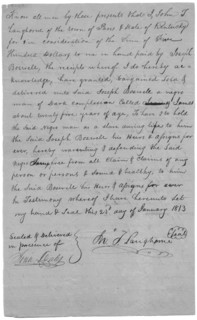 Know all men by these presents that I John T
Langhorne of the town of Paris & State of Kentucky
for & in consideration of the Sum of Four
Hundred dollars to me in hand paid by Joseph
the receipt whereof I do hereby ac-
knowledge, have granted, bargained Sold &
delivered unto Said Joseph a negro
man of dark complexion Called James
about twenty five years of age, To have & to hold
the Said Negro man as a slave during life to him
the Said Joseph his Heirs & Assigns for
ever hereby warranting & defending the Said
Negro from all Claim or Claims of any
person or persons & Sound & healthy, to him
the Said his Heirs & Assigns for ever
In Testimony whereof I have hereunto Set
my hand & Seal this day of January 1813
Sealed & delivered
in presence of
Jno T Langhorne Seal